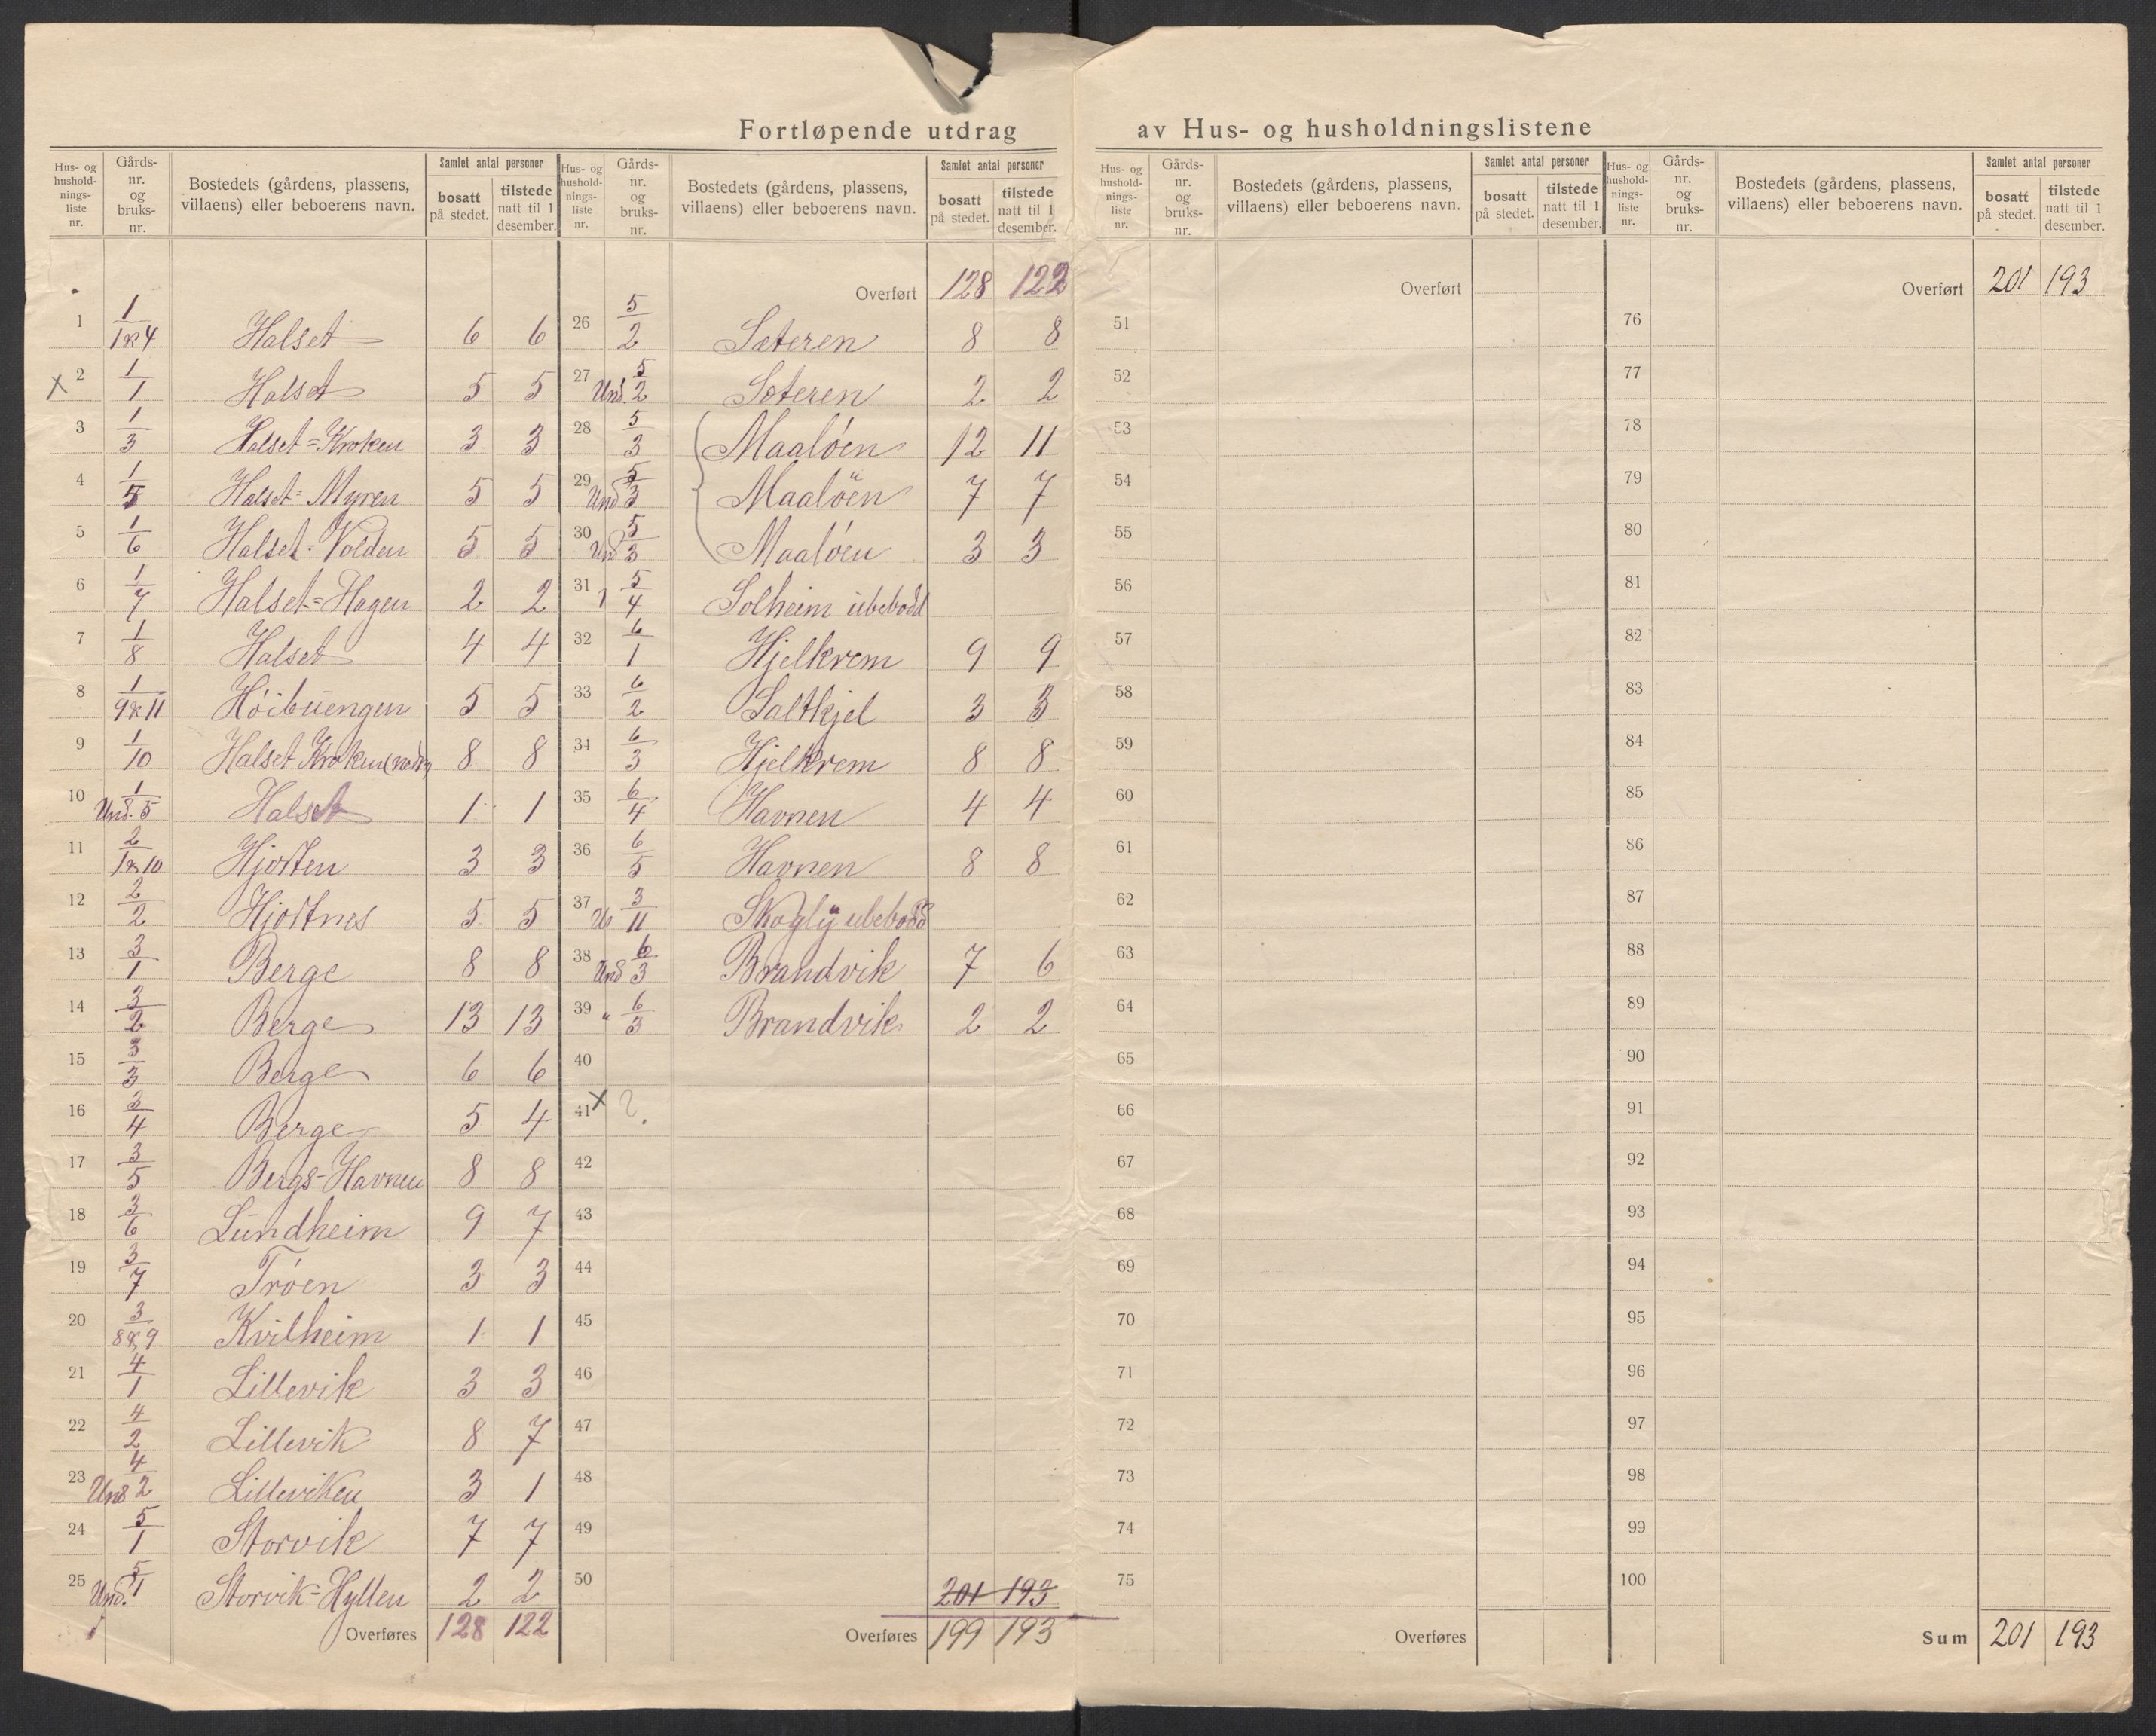 Fortløpende utdrag av Hus- og husholdningslistene
Hus- og husholdnings-liste nr. Gårds-nr. og bruks-nr. Bostedets (gårdens, plassens, villaens) eller beboerens navn. Samlet antal personer bosatt på stedet. tilstede natt til 1 desember.
1 1/1 & 4 Halset 6 6
x 2 1/1 Halset 5 5
3 1/3 Halset=Kroken 3 3
4 1/5 Halset=Myren 5 5
5 1/6 Halset=Volden 5 5
6 1/7 Halset=Hagen 2 2
7 1/8 Halset 4 4
8 1/9 & 11 Høibuengen 5 5
9 1/10 Halset Kroken (nedr) 8 8
10 Und. 1/5 Halset 1 1
11 2/1 & 10 Hjorten 3 3
12 2/2 Hjortnes 5 5
13 3/1 Berge 8 8
14 3/2 Berge 13 13
15 3/3 Berge 6 6
16 3/4 Berge 5 4
17 3/5 Bergs-Havnen 8 8
18 3/6 Lundheim 9 7
19 3/7 Trøen 3 3
20 3/8 & 9 Kvilheim 1 1
21 4/1 Lillevik 3 3
22 4/2 Lillevik 8 7
23 Und 4/2 Lilleviken 3 1
24 5/1 Storvik 7 7
25 Und. 5/1 Storvik-Hyllen 2 2
Overføres 128 122
Hus- og husholdnings-liste nr. Gårds-nr. og bruks-nr. Bostedets (gårdens, plassens, villaens) eller beboerens navn. Samlet antal personer bosatt på stedet. tilstede natt til 1 desember.
Overført 128 122
26 5/2 Sæteren 8 8
27 Und. 5/2 Sæteren 2 2
28 5/3 Maaløen 12 11
29 Und 5/3 Maaløen 7 7
30 Und 5/3 Maaløen 3 3
31 5/4 Solheim ubebodd
32 6/1 Hjelkrem 9 9
33 6/2 Saltkjel 3 3
34 6/3 Hjelkrem 8 8
35 6/4 Havnen 4 4
36 6/5 Havnen 8 8
37 U 3/11 Skogly ubebodd
38 Und 6/3 Brandvik 7 6
39 " 6/3 Brandvik 2 2
40
41 x ?
42
43
44
45
46
47
48
49
50 201 193
Overføres 199 193
Hus- og husholdnings-liste nr. Gårds-nr. og bruks-nr. Bostedets (gårdens, plassens, villaens) eller beboerens navn. Samlet antal personer bosatt på stedet. tilstede natt til 1 desember.
Overført
51
52
53
54
55
56
57
58
59
60
61
62
63
64
65
66
67
68
69
70
71
72
73
74
75
Overføres
Hus- og husholdnings-liste nr. Gårds-nr. og bruks-nr. Bostedets (gårdens, plassens, villaens) eller beboerens navn. Samlet antal personer bosatt på stedet. tilstede natt til 1 desember.
Overført 201 193
76
77
78
79
80
81
82
83
84
85
86
87
88
89
90
91
92
93
94
95
96
97
98
99
100
Sum 201 193